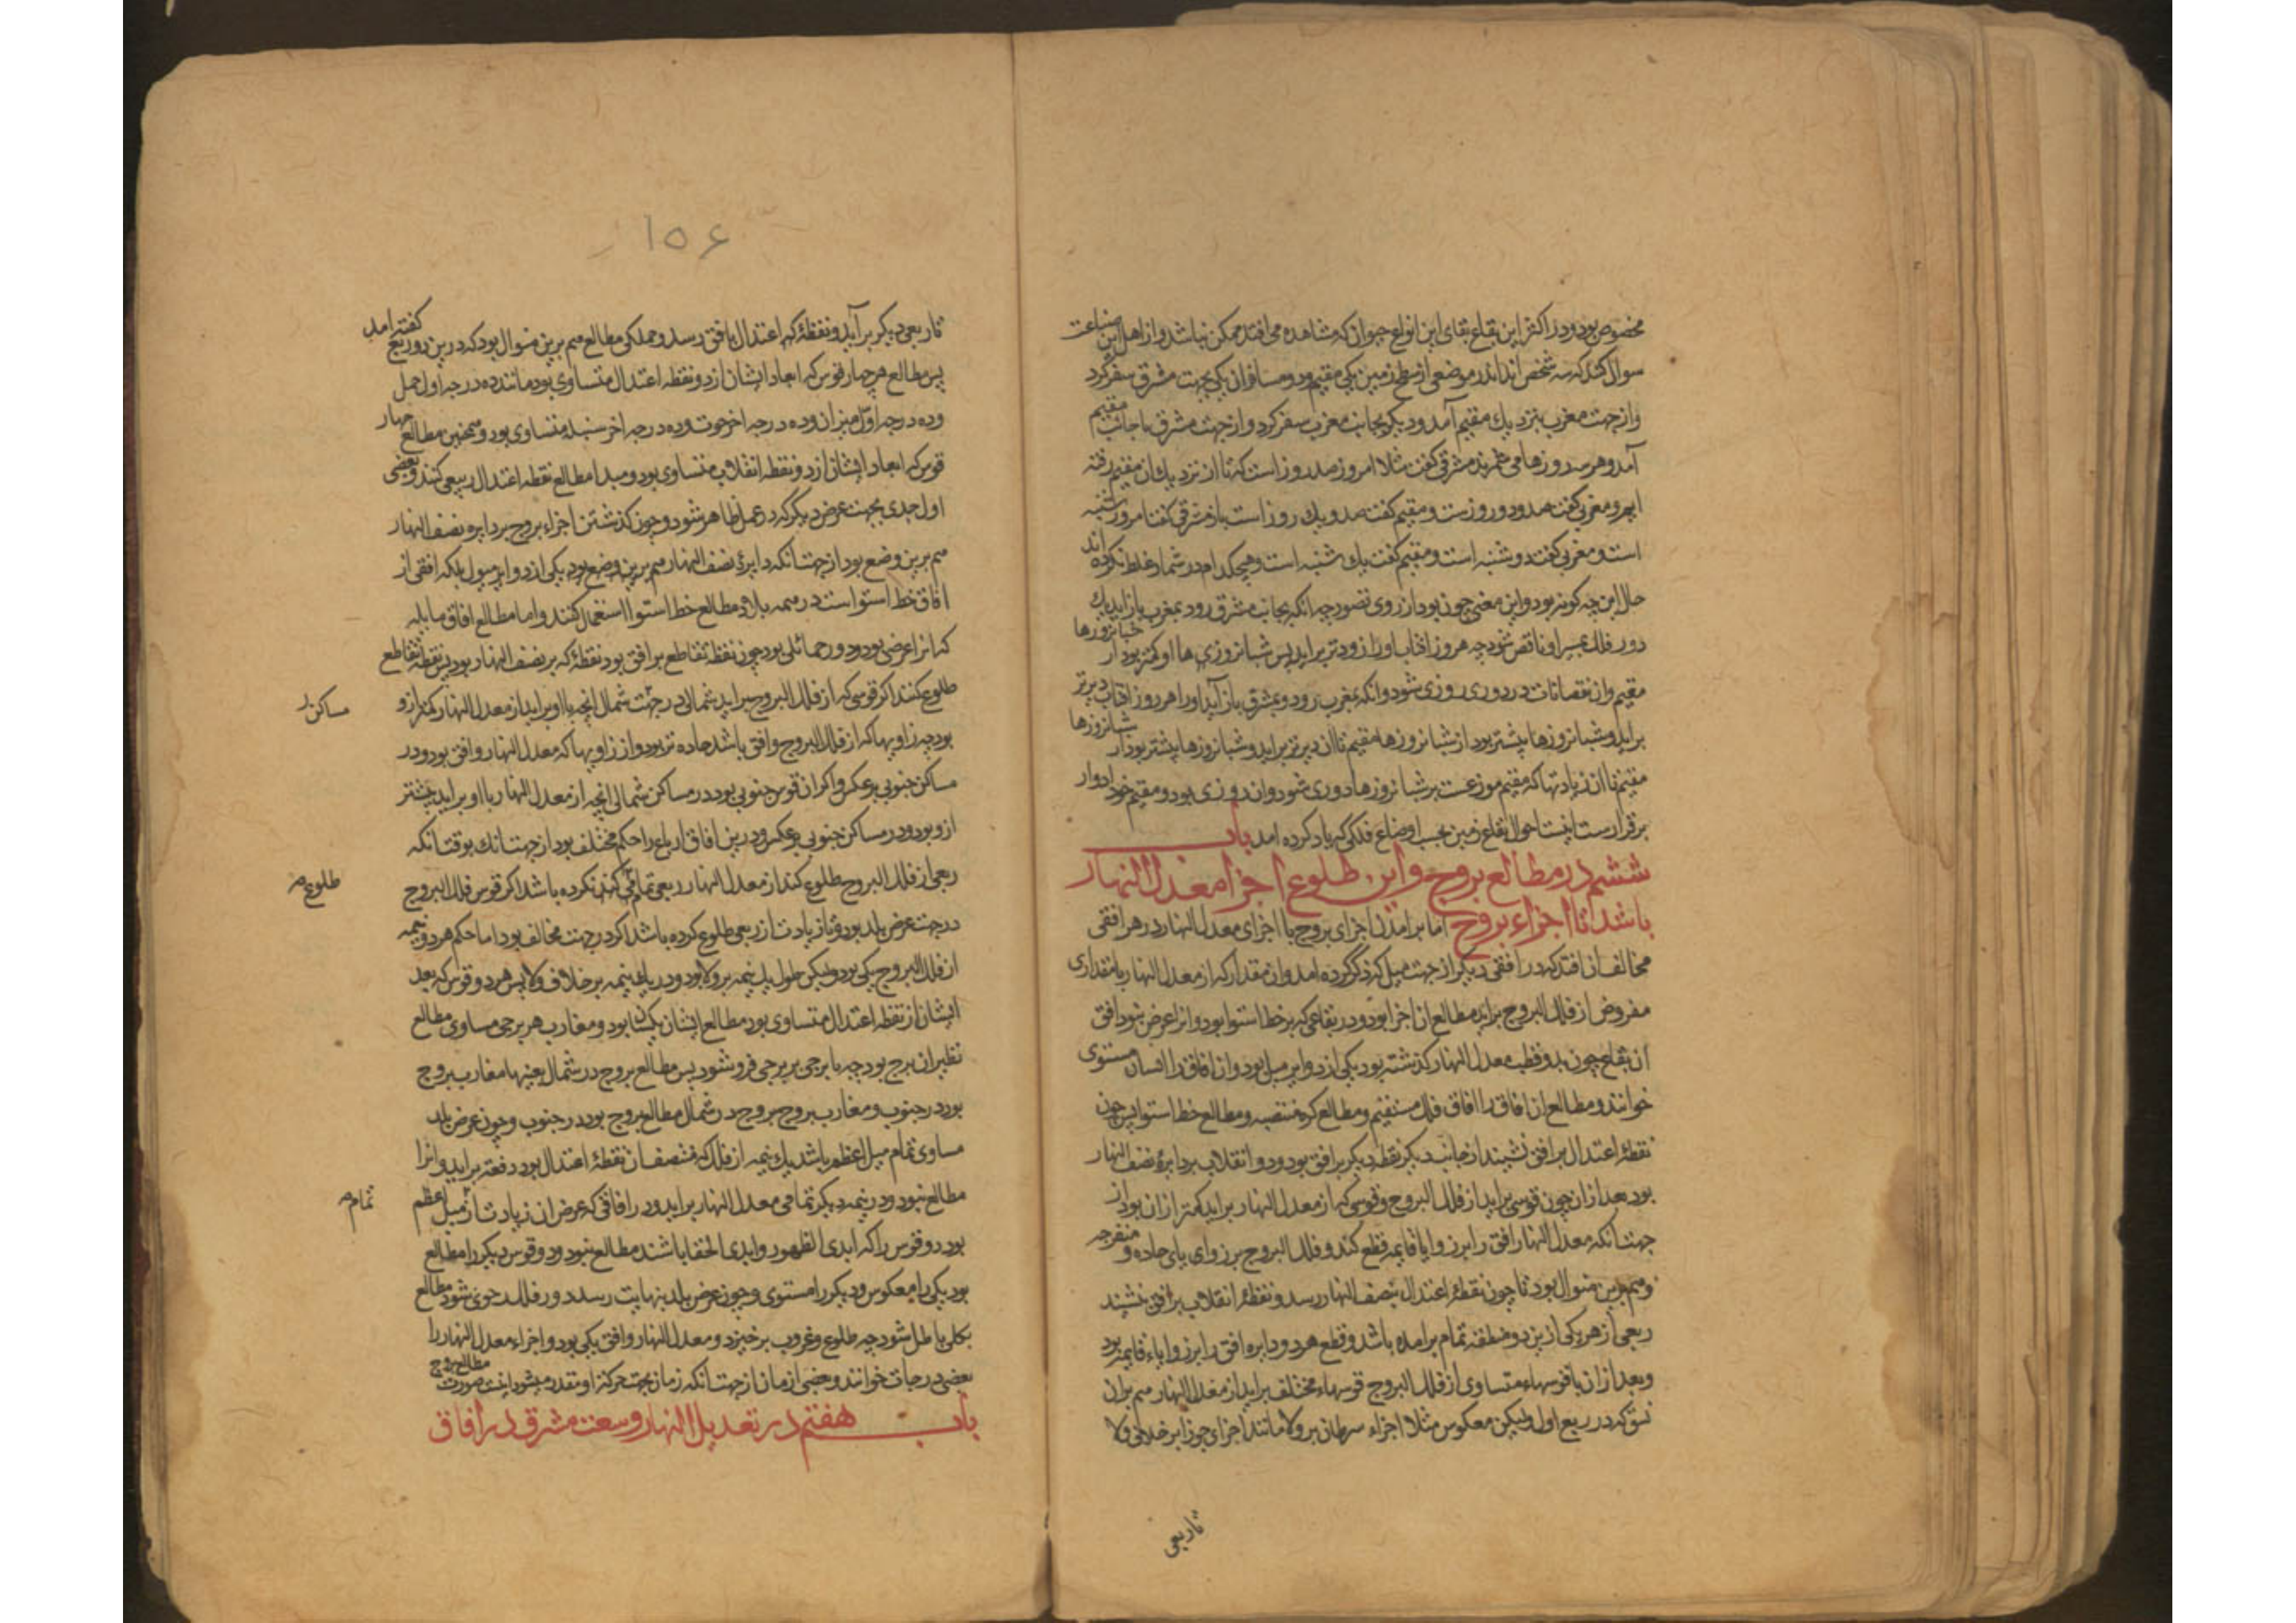 مخصوص بود و در اکثر این بقاع بقای این انواع حیوان که مشاهده می افتد ممکن نباشد و از اهل این صناعت
سوال کنند که سه شخص اند اندر موضعی از سطح زمین یکی مقیم و دو مسافر ان یکی بجهت مشرق سفر کرد
و از جهت مغرب بنزدیک مقیم آمد و دیگر بجانب مغرب سفر کرد و از جهت مشرق با جانب مقیم
آمد و هر سه روزها می شمرند مشرقی گفت مثلا امروز صد روز است که تا از نزدیک ان مقیم رفته
ایم و مغربی گفت صد و دو روزست و مقیم گفت صد و یک روز است باز مشرقی گفت امروز شنبه
است و مغربی گفت دو شنبه است و مقیم گفت یک شنبه است و هیچکدام در شمار غلط نکرده اند
حال این چه کونه بود و این معنی چون بود از روی تصور چه انکه بجانب مشرق رود بمغرب باز اید یک
دور فلک بسیر او ناقص شود چه هر روز افتاب او را زودتر براید پس شبانروزی ها او کمتر بود از شبانروزها
مقیم و ان نقصانات در دوری روزی شود و انکه بمغرب رود و بمشرق باز آید او را هر روز افتاب دیرتر
براید و شبانروزها بیشتر بود از شبانروزها مقیم تا ان دیرتر براید و شبانروزها بیشتر بود از شبانروزها
مقیم تا ان زیادتها که مقیم موزعست بر شبانروزها دوری شود و ان روزی بود و مقیم خود ادوار
برقرارست اینست احوال بقاع زمین بحسب اوضاع فلکی که یاد کرده امد باب
ششم در مطالع بروج و این طلوع اجزا معدل النهار
باشد تا اجزاء بروج اما برامدن اجزای بروج با اجزای معدل النهار در هر افقی
مخالف ان افتد که در افقی دیگر از جهت میل که ذکر کرده امد و ان مقدار که از معدل النهار با مقداری
مفروض از فلک البروج براید مطالع ان اجزا بود و در بقاعی که بر خط استوا بود و انرا عرض نبود افق
ان بقاع چون بدو قطب معدل النهار گذشته بود یکی از دوایر میل بود و ان افاق را انسان مستوی
خوانند و مطالع ان افاق را افاق فلک مستقیم و مطالع کره منتصبه و مطالع خط استوا پس چون
نقطه اعتدال بر افق نشیند از جانب دیگر نقطه دیگر بر افق بود و دو انقلاب بر دایرۀ نصف النهار
بود بعد از ان چون قوسی براید از فلک البروج و قوسی که از معدل النهار براید کمتر از ان بود از
جهت انکه معدل النهار افق را بر زوایا قایمه قطع کند و فلک البروج بر زوای یای حاده و منفرجه
و هم برین منوال بود تا چون نقطۀ اعتدال بنصف النهار رسد و نقطۀ انقلاب بر افق نشیند
ربعی از هر یکی از ین دو منطقه تمام برامده باشد و قطع هر دو دایره افق را بر زوایاء قایمه بود
و بعد ازان با قوسهاء متساوی از فلک البروج قوسهاء مختلف براید از معدل النهار هم بران
نسق که در ربع اول ولیکن معکوس مثلا اجزاء سرطان بر ولا مانند اجزای جوزا بر خلاف ولا
تاربعی
۱۵۶
تاربعی دیگر بر آید و نقطۀ که اعتدال بافق رسد و جملگی مطالع هم برین منوال بود که درین دو ربع گفته امد
پس مطالع هر چهار قوس که ابعاد ایشان از دو نقطه اعتدال متساوی بود مانند ده درجه اول حمل
و ده درجه اول میزان و ده درجه اخر حوت و ده درجه اخر سنبله متساوی بود و همچنین مطالع چهار
قوس که ابعاد ایشان از دو نقطه انقلاب متساوی بود و مبدا مطالع نقطه اعتدال ربیعی کنند و بعضی
اول جدی بجهت غرض دیگر که در عمل ظاهر شود و چون گذشتن اجزاء بروج بر دایره نصف النهار
هم برین وضع بود از جهت انکه دایرۀ نصف النهار هم برین وضع بود یکی از دوایر میول بلکه افقی از
افاق خط استواست در همه بلاد مطالع خط استوا استعمال کنند و اما مطالع افاق مایله
که انرا عرضی بود و دور حمائلی بود چون نقطۀ تقاطع بر افق بود نقطۀ که بر نصف النهار بود پس نقطه تقاطع
طلوع کنند اگر قوسی که از فلک البروج براید شمالی در جهت شمال انچه با او براید از معدل النهار کمتر ازو
مساکن
بود چه زاویها که از فلک البروج و افق باشد حاده تر بود و از زاویها که معدل النهار و افق بود و در
مساکن جنوبی بر عکس و اکر ان قوس جنوبی بود در مساکن شمالی انچه از معدل النهار با او براید بیشتر
ازو بود و در مساکن جنوبی بر عکس و درین افاق ارباع را حکم مختلف بود از جهت انک بوقت انکه
ربعی از فلک البروج طلوع کند از معدل النهار ربعی تمام نکرده باشد اکر قوس فلک البروج
طلوع
در جهت عرض بلد بود و یا زیادت از ربعی طلوع کرده باشد اکر در جهت مخالف بود اما حکم هر دو نیمه
از فلک البروج یکی بود ولیکن طول یک نیمه بر ولا بود و در باقی نیمه بر خلاف ولا پس هر دو قوس که بعد
ایشان از نقطه اعتدال متساوی بود مطالع ایشان یکسان بود و مغارب هر برجی مساوی مطالع
نظیر ان برج بود چه با برجی بر برجی فروشود پس مطالع بروج در شمال بعینها مغارب بروج
بود در جنوب و مغارب بروج بروج در شمال مطالع بروج بود در جنوب و چون عرض بلد
مساوی تمام میل اعظم باشد یک نیمه از فلک که منتصف ان نقطۀ اعتدال بود دفعة براید و انرا
مطالع نبود و در نیمه دیگر تمامی معدل النهار براید و در افاقی که عرض ان زیادت از میل اعظم
تمام
بود دو قوس را که ابدی الظهور و ابدی الخفا باشند مطالع نبود و دو قوس دیگر را مطالع
بود یکی را معکوس و دیگر را مستوی و چون عرض بلد بنهایت رسد دور فلک رحوی شود مطالع
بکلی باطل شود چه طلوع و غروب برخیزد و معدل النهار و افق یکی بود و اجزاء معدل النهار را
بعضی درجات خوانند و بعضی ازمان از جهت انکه زمان بجهت حرکة او مقدر میشود اینست صورت مطالع بروج
باب هفتم در تعدیل النهار و سعت مشرق در افاق